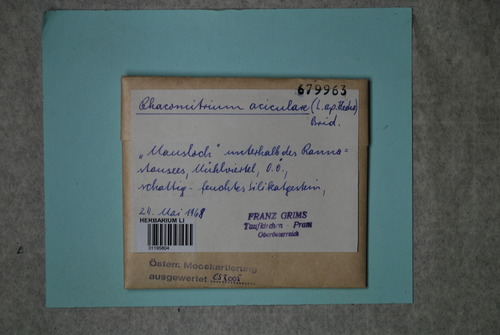 679963
Rhacomitrium aciculare (L. ap. Hedw)
Brid.
"Mausloch" unterhalb des Ranna-
stausees, Mühlviertel, O.Ö.,
schattig-feuchtes Silikatgestein,
24. Mai 1968
HERBARIUM LI
01195804
FRANZ GRIMS
Taufkirchen - Pram
Oberösterreich
Österr. Mooskartierung
ausgewertet